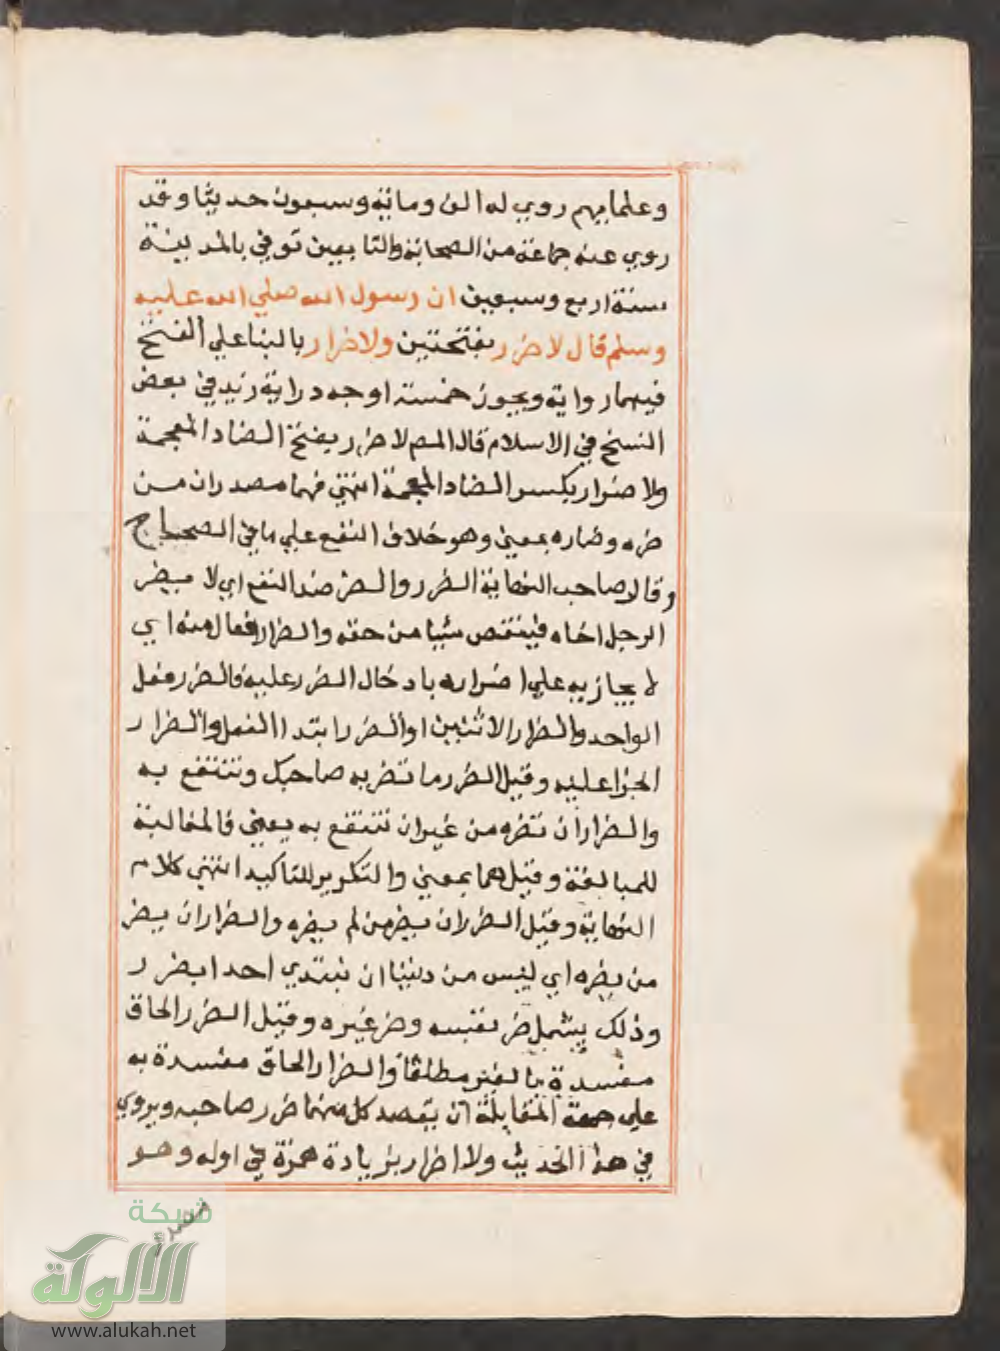 وعلمايهم روي له الف وماية وسبعون حديثا وقد
روي عنه جماعة من الصحابة والتابعين توفي بالمدينة
سنة اربع وسبعين ان رسول الله صلي الله عليه
وسلم قال لا ضرر بفتحتين ولا ضرار بالبنا علي الفتح
فيهما رواية ويجوز خمسة اوجه دراية زيد في بعض
النسخ في الاسلام قال المص لا ضرر بفتح الضاد المعجمة
ولا ضرار بكسر الضاد المعجمة انتهي فهما مصدران من
ضره وضاره بمعني وهو خلاف النفع علي ما في الصحاح
وقال صاحب النهاية الضرر والضر ضد النفع اي لا يضر
الرجل اخاه فينقص شيا من حقه والضرار فعال منه اي
لا يجازيه علي اضراره بادخال الضرر عليه فالضرر فعل
الواحد والضرار الاثنين او الضرر ابتدا الفعل والضرار
الجزا عليه وقيل الضرر ما تضر به صاحبك وتنتفع به
والضرار ان تضره من غير ان تنتفع به يعني فالمغالبة
للمبالغة وقيل هما بمعني والتكرير للتاكيد انتهي كلام
النهاية وقيل الضرر ان يضر من لم يضره والضرار ان يضر
من يضره اي ليس من ديننا ان يبتدي احد ابضرر
وذلك يشمل ضر نفسه وضر غيره وقيل الضرر الحاق
مفسدة بالغير مطلقا والضرار الحاق مفسدة به
علي جهة المقابلة ان يقصد كل منهما ضرر صاحبه ويروي
في هذا الحديث ولا اضرار بزيادة همزة في اوله وهو
مصدر
شبكة
الألوكة
www.alukah.net